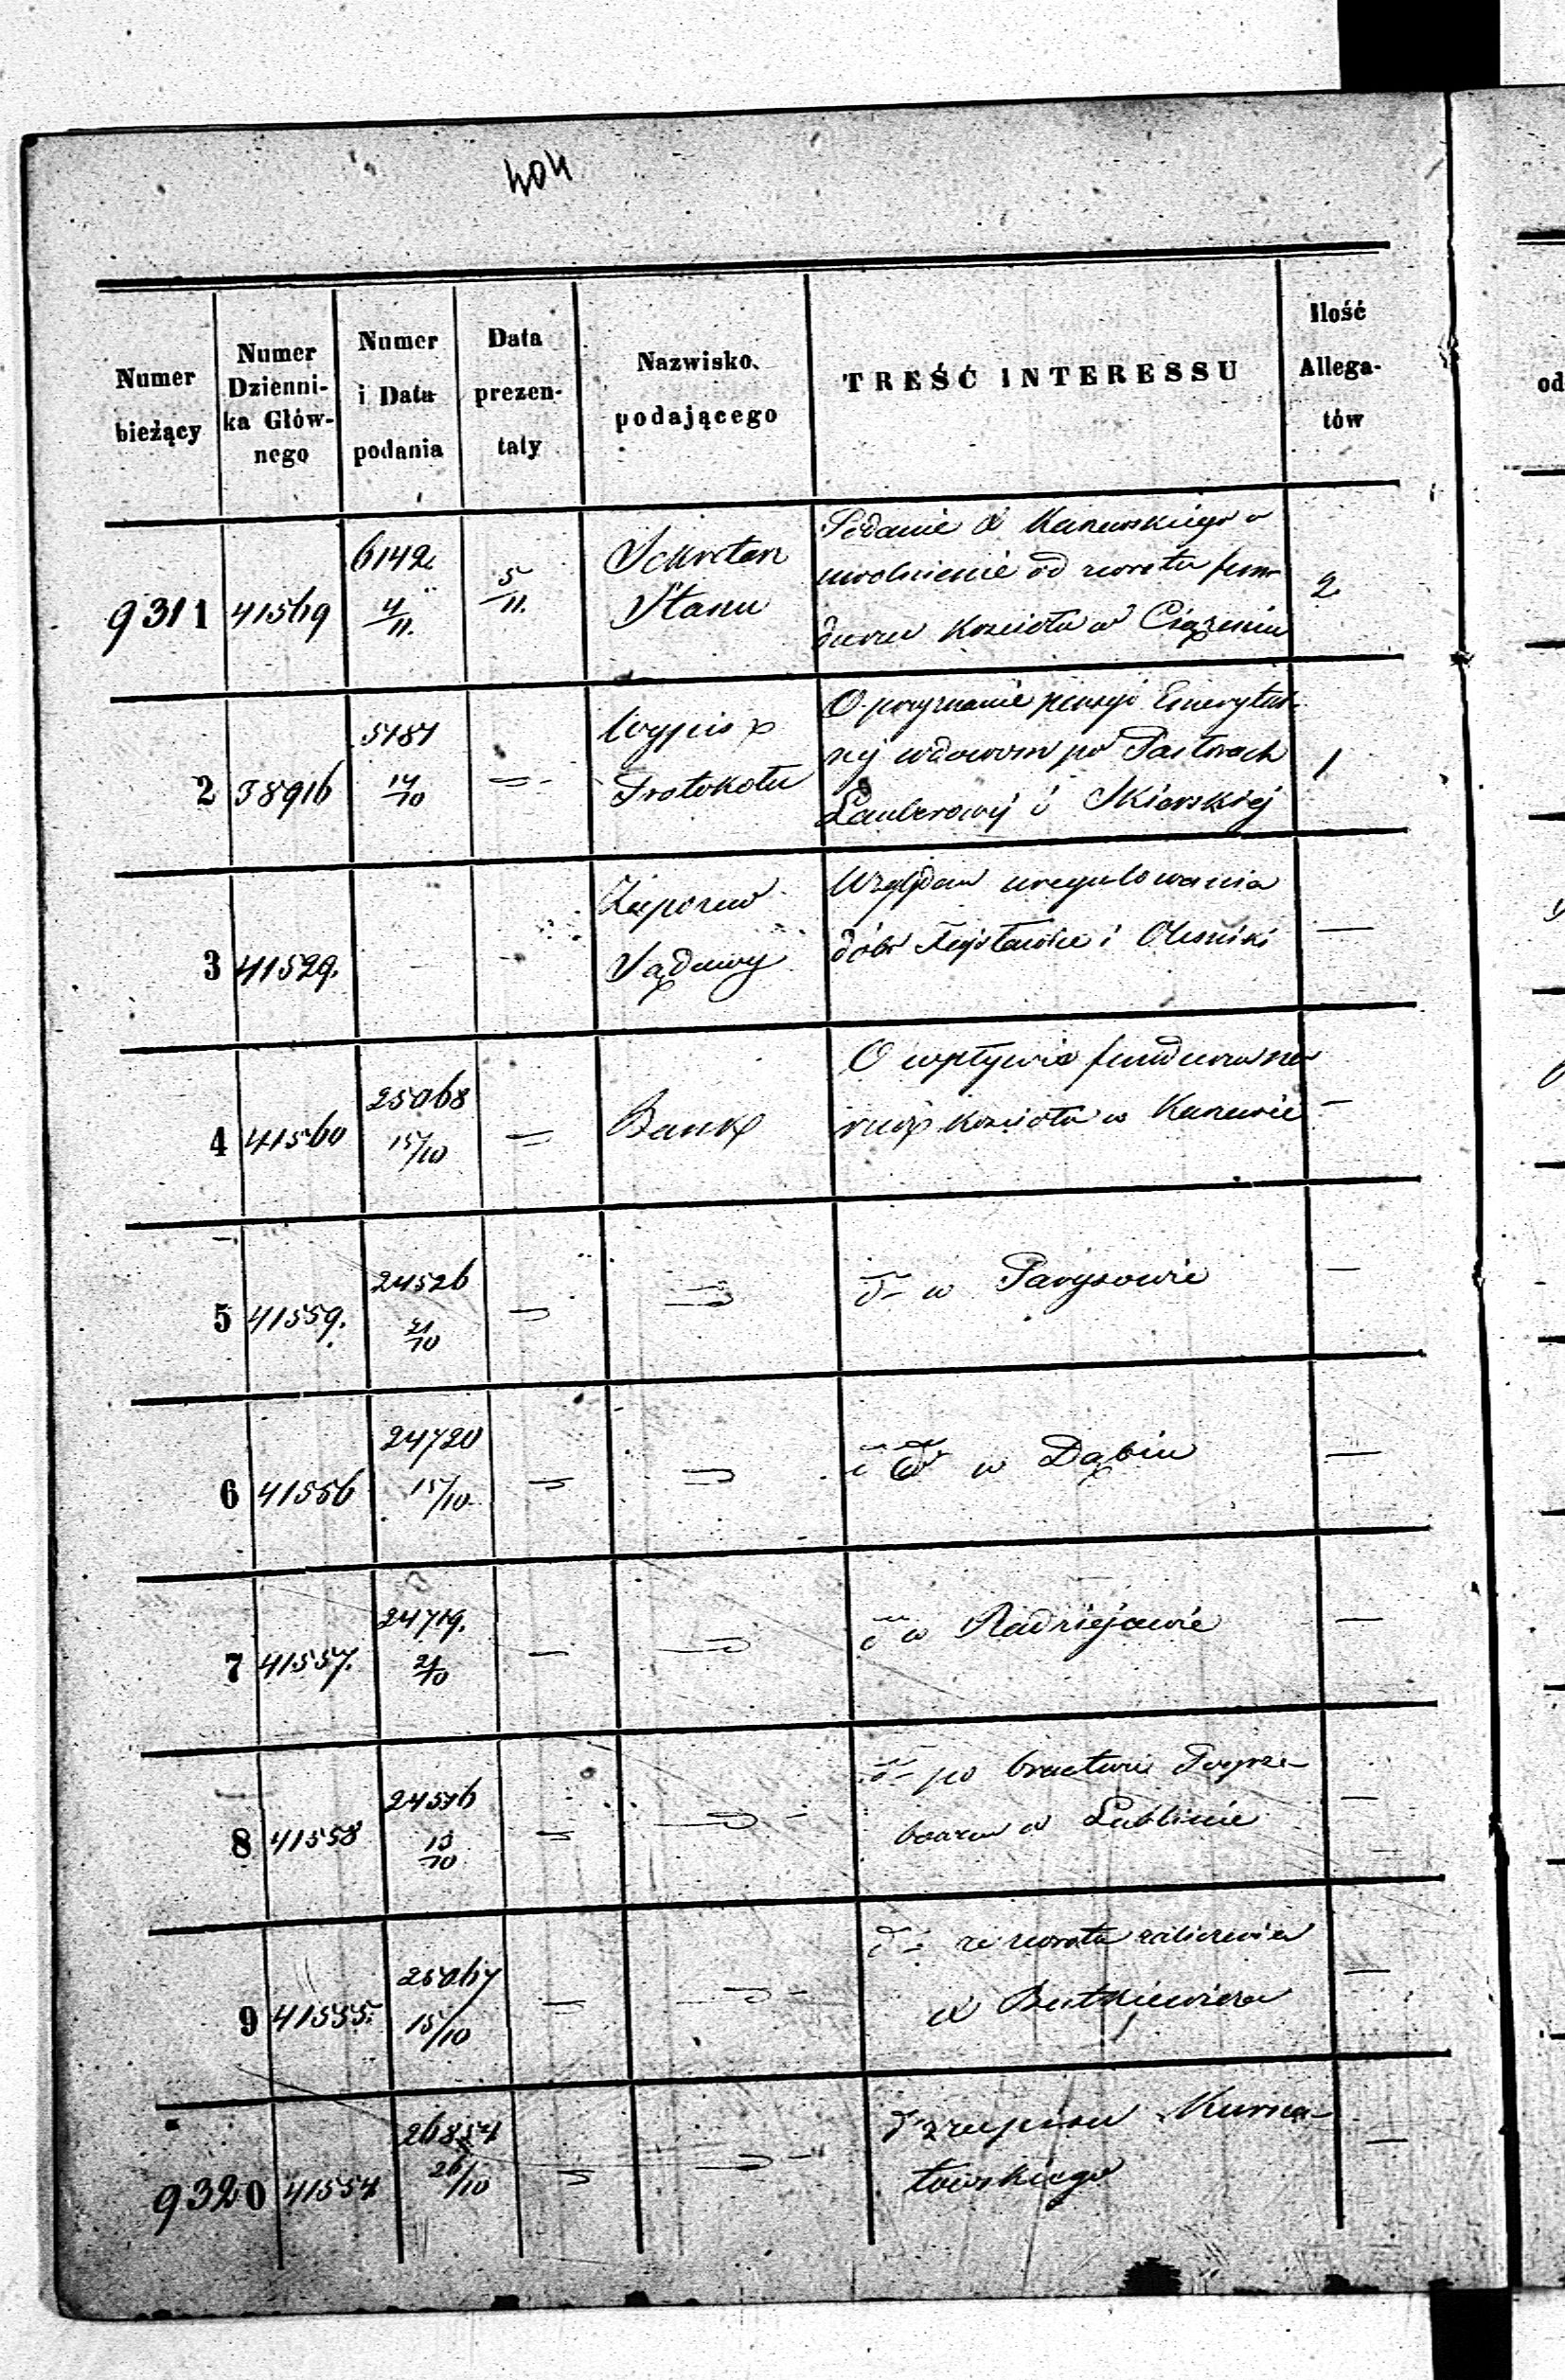 404
Numer bieżący
Numer Dzienni-ka Głów-nego
Numer i Data podania
Data prezen-taty
Nazwisko podającego
TREŚĆ INTERESSU
Ilość Allega-tów
9311 41569 6142 4/11. 5/11. Sekretarz Stanu 2
Podanie X Kanewskiego o
uwolnienie od zwrotu fun-
duszu Kościoła w Ciążeniu
2 38916 5181 14/10 = Wypis z Protokołu 1
O przyznanie pensyi Emerytal-
nej wdowom po Pastorach
Lauberowej i Skierskiej
3 41529. - - Zapozew Sądowy —
Względem uregulowania
dóbr i Olesniki
4 41560 25068 15/10 = Bank —
O wpływie funduszu na
rzecz kościoła w
5 41559. 24526 21/10 = = —
d- w Parysowie
6 41556 24720 15/10 = = —
w Dąbiu
7 41557. 24719. 21/10 — = —
d w Radziejowie
8 41558 24516 13/10 = = —
d- po bractwie Pogrze-
bowem w Lublinie
9 41555. 25067 15/10 = = —
d- ze zwrotu zaliczenia
X Butkiewicza
9320 41554 26854 26/10 = = —
d z zapisu Kurna-
towskiego